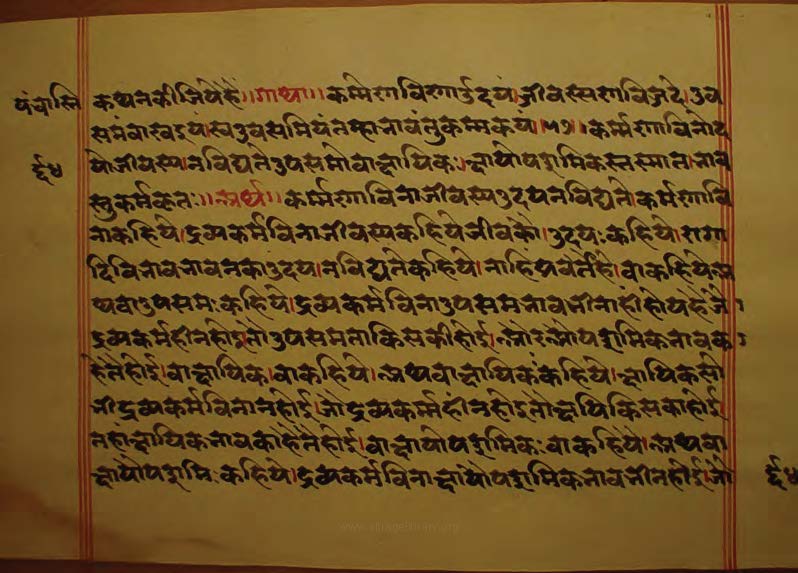 पंचास्ति
कथनकीजियेहै॥गाथा॥कम्मेणविणाउदयं।जीवस्सणविज्जदे।उव
समंवाखइयं।खउवसमियंतम्हाभावंतुकम्मकयं।५७॥कर्म्मणाविनोद
योजीवस्य।नविद्यतेउपसमोवा।क्षायिकः।क्षायोपशमिकस्तस्मात।भाव
स्तुकर्मकृतः॥अर्थ॥कर्म्मणाविनाजीवस्यउदयनविद्यते।कर्मणावि
नाकहिये।द्रव्यकर्मविनाजीवस्यकहियेजीवकै।उदयःकहिये।रागा
दिविभावभावनका।उदय।नविद्यतेकहिये।नाहिप्रवर्तेहै।वाकहियेअ
थवा।उपसमःकहिये।द्रव्यकर्मविनाउपसमभावभीनांहीहोयहै।जो
द्रव्यकर्महीनहोइ।तोउपसमताकिसकीहोई।औरऔपशमिकभावक
हेतैहोई।वाक्षायिक।वाकहिये।अथवाक्षायिकंकहिये।क्षायिकसो
भीद्रव्यकर्मविनानहोई।जोद्रव्यकर्म्महीनहोइतोक्षायिकिसकाहोई
तहांक्षायिकभावकाहेतैहोई।वाक्षायोपशमिकःवाकहिये।अथवा
क्षायोपशमिःकहिये।द्रव्यकर्मविनाक्षायोपशमिकभावभीनहोई।जो